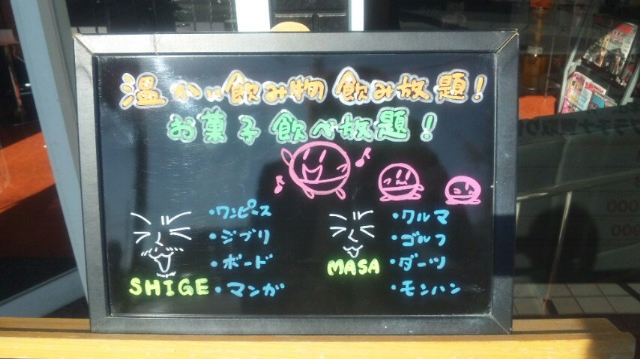 温かい飲み物 飲み放題!
お菓子 食べ放題!
・ワンピース
・ジブリ
・ボード
・マンガ
SHIGE
・クルマ
・ゴルフ
・ダーツ
・モンハン
MASA